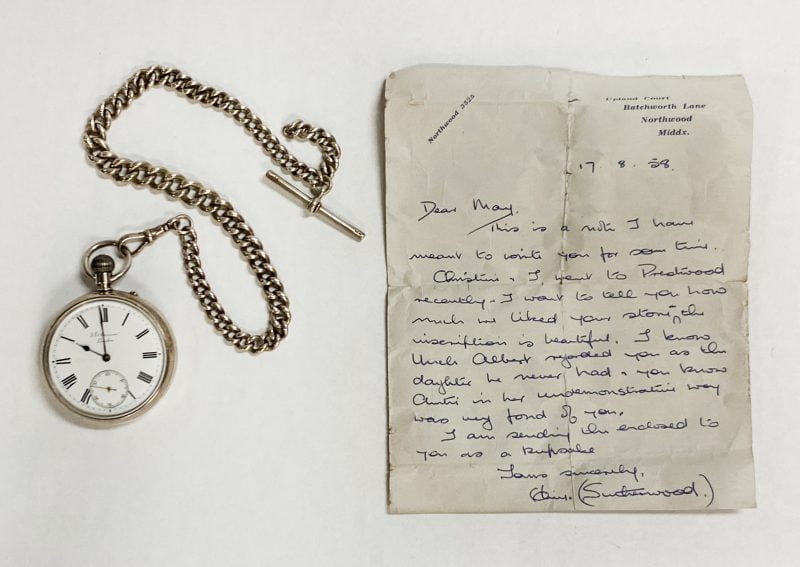 XII
I
II
III
IIII
V
VII
VIII
IX
X
XI
Northwood 2525
Upland Court
Batchworth Lane
Northwood
Middx.
17 . 8 . 58.
Dear May,
This is a note I have
meant to write you for some time.
Christine & I went to
recently. I want to tell you how
much we liked your stone, the
inscription is beautiful. I know
Uncle Albert regarded you as the
daughter he never had & you know
Auntie in her undemonstrative way
was very fond of you.
I am sending the enclosed to
you as a keepsake
Yours sincerely,
(Sutherwood.)